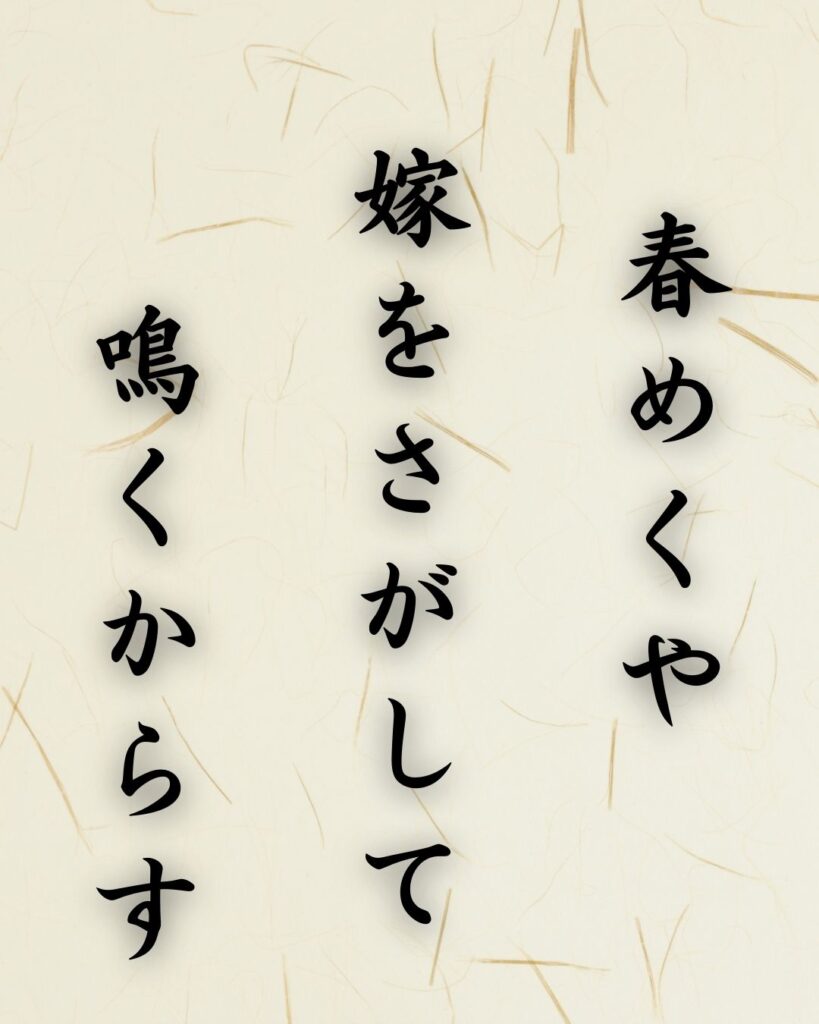 春めくや
嫁をさがして
鳴くからす